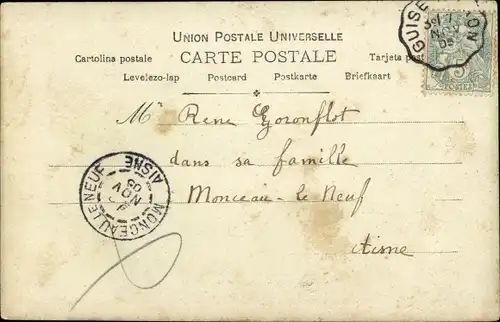 UNION POSTALE UNIVERSELLE
CARTE POSTALE
Cartolina postale
Tarjeta post
Levelezo-lap Postcard Postkarte Briefkaart
GUISE
NOV
05
POSTES
Mr Rene Goronflot
dans sa famille
Monceau-le Neuf
Aisne
MONCEAU LE NEUF AISNE
NOV
05